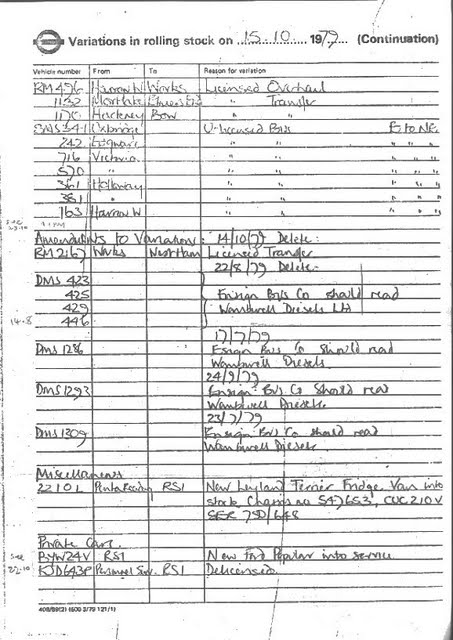 Variations in rolling stock on 15.10 1979 (Continuation)
Vehicle number From To Reason for variation
RM 496 Harrow W Works Licensed Overhaul
1132 Mortlake " Transfer
1170 Hackney Bow
SMS 341 U-licensed Bus E to NE.
242 Edgware " " " " "
716 Victoria " " " " "
570 " " " " " "
361 Holloway " " " " "
381 " " " " " "
763 Harrow W " " " " "
Amendments to Variations: 14/10/79 Delete:
RM 2167 Works West Ham Licensed Transfer
22/8/79 Delete:-
DMS 423
425 Ensign Bus Co should read
429 Wombwell Diesels Ltd
14-8 446
17/7/79
DMS 1286 Ensign Bus Co Should read
Wombwell Diesels.
24/9/79
DMS 1293 Ensign Bus Co Should read
Wombwell Diesels.
23/7/79
DMS 1309 Ensign Bus Co should read
Wombwell Diesels
Miscellaneous
2210L RS1 New Leyland Terrier Fridge Van into
stock Chassis no 547653, CUC 210V
Private Cars.
24V RS1 New Ford Popular into service
see
22.10 KJD643P Personnel Serv. RS1 Delicensed.